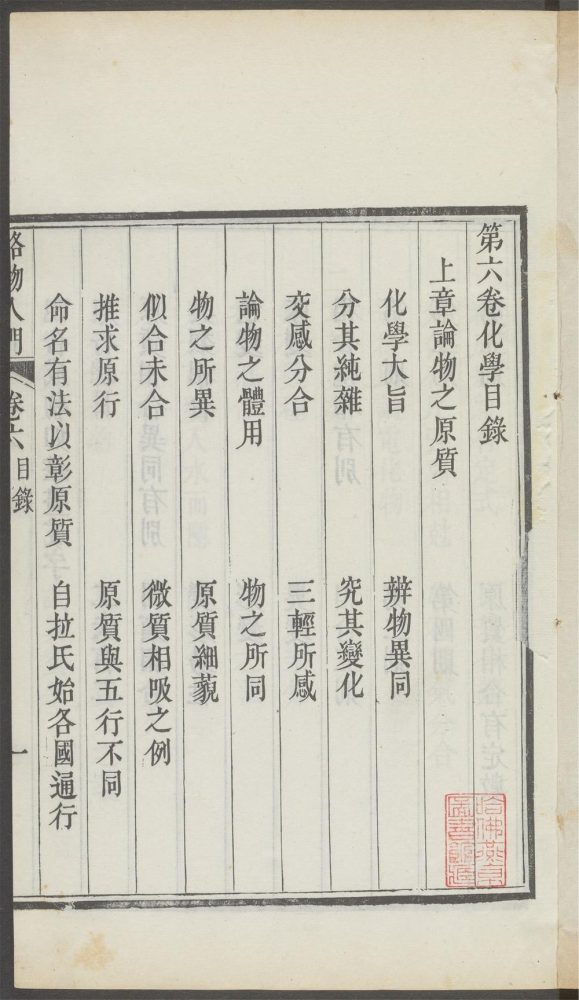 第六卷化學目錄
上章論物之原質
化學大旨 辨物異同
分其純雜 究其變化
交感分合 三輕所感
論物之體用 物之所同
物之所異 原質細藐
似合未合 微質相吸之例
推求原行 原質與五行不同
命名有法以彰原質 自拉氏始各國通行
格物入門 卷六 目錄 一
哈佛燕京圖書館藏